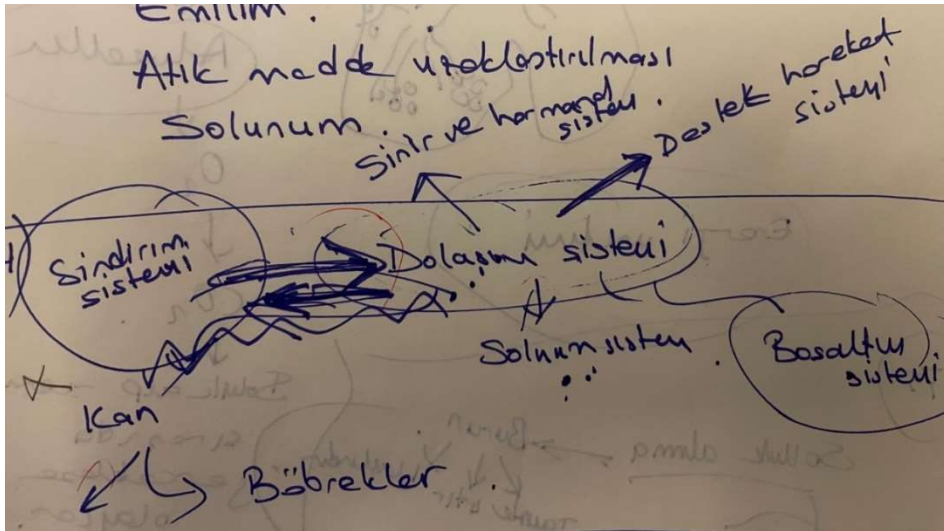 Emilim.
Atık madde uzaklaştırılması
Solunum.
Sinir ve hormonal
sistem.
Destek hareket
sistemi
Sindirim
sistemi
Dolaşım sistemi
Solunum sistem
Boşaltım
sistemi
Kan
Böbrekler.